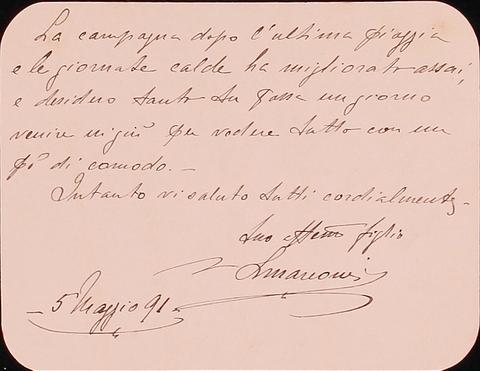 La campagna dopo l'ultima pioggia
e le giornate calde ha migliorato assai,
e desidero tanto Tu possa un giorno
venire in giù per vedere tutto con un
pò di comodo. —
Intanto vi saluto tutti cordialmente —
Suo affmo figlio
LMarconi
— 5 Maggio 91 —